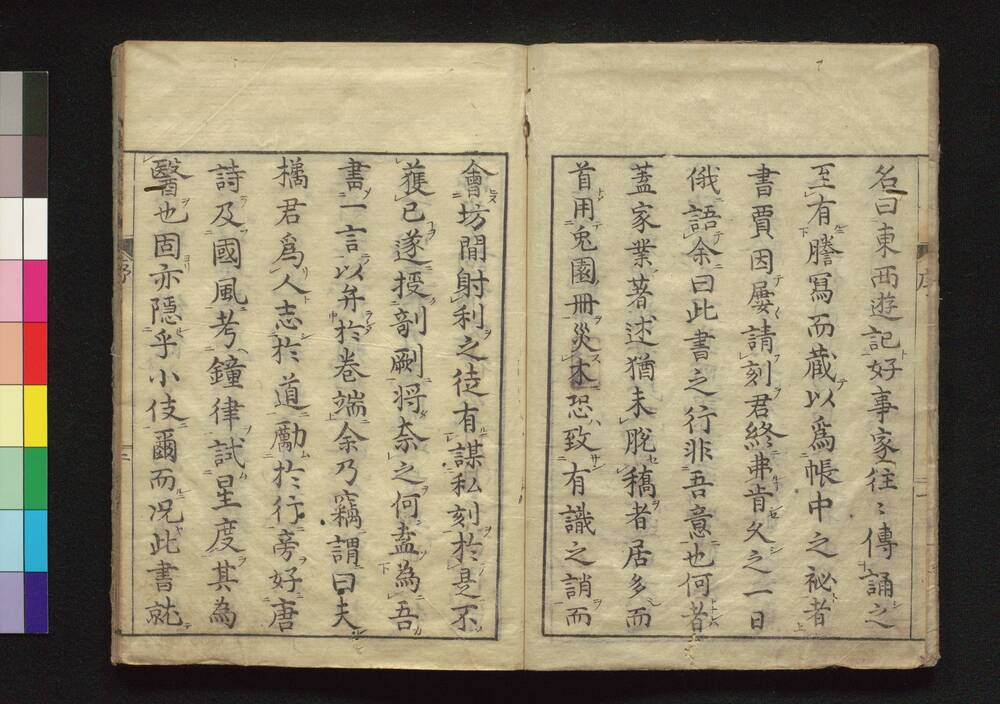 名曰東西遊記好事家往〻傳誦之
至有謄寫而藏以爲帳中之祕者
書賈因屢請刻君終弗肯久之一日
俄語余曰此書之行非吾意也何者
蓋家業著述猶未脫稿者居多而
首用兎園冊災木恐致有識之誚而
會坊間射利之徒有謀私刻於是不
獲已遂授剞劂將奈之何盍為吾
書一言以弁於卷端余乃竊謂曰夫
橘君爲人志於道勵於行旁好唐
詩及國風考鐘律試星度其為
醫也固亦隱乎小伎爾而况此書就
序
二